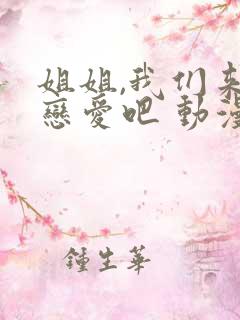 姐姐,我们来
戀愛吧 動漫
鍾生華